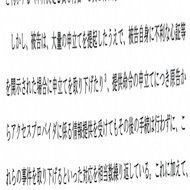 しかし、被告は、大量の申立てを提起したうえで、被告自身に不利な心証等
を開示された場合に申立てを取り下げたり²、提供命令の申立てにつき原告か
らアクセスプロバイダに係る情報提供を受けてもその後の手続は行わずに、こ
れらの事件を取り下げるといった対応を相当数繰り返している。これに加えて、